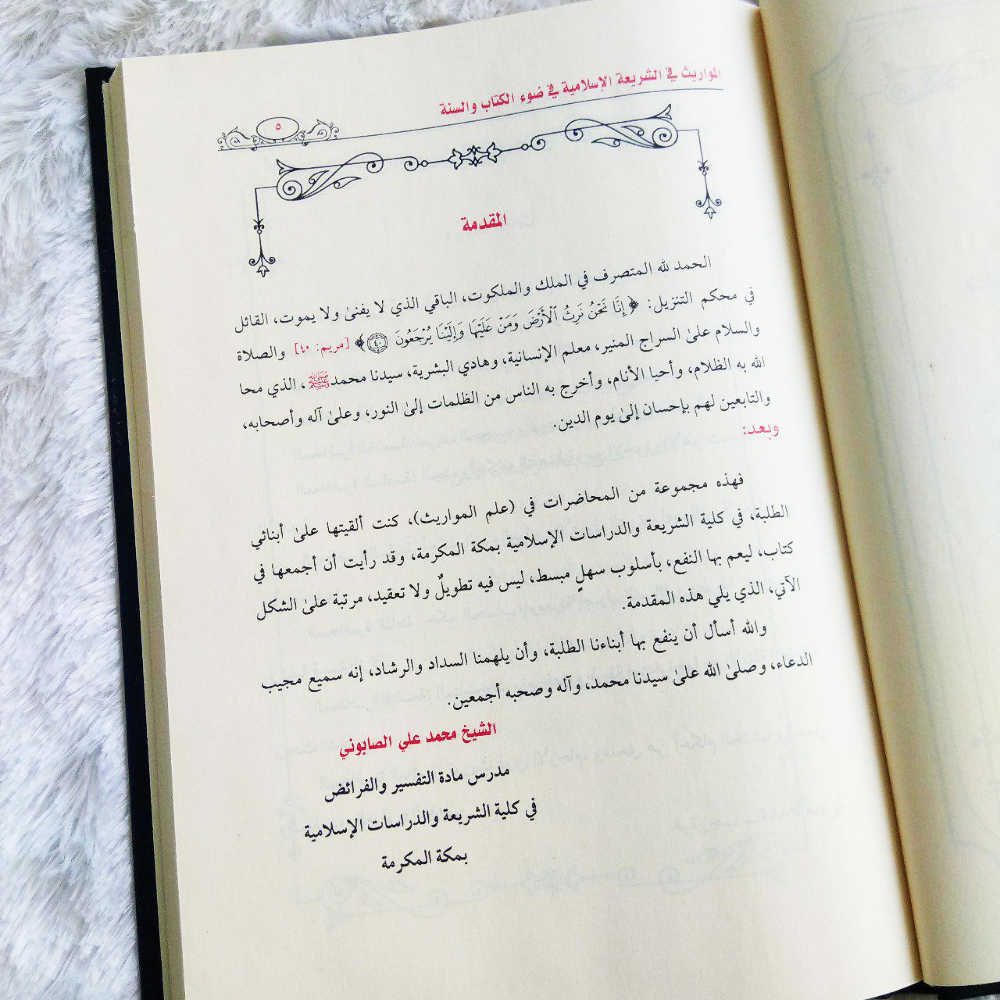 المواريث في الشريعة الإسلامية في ضوء الكتاب والسنة
٥
المقدمة
الحمد لله المتصرف في الملك والملكوت، الباقي الذي لا يفنىٰ ولا يموت، القائل
في محكم التنزيل: ﴿إِنَّا نَحْنُ نَرِثُ ٱلْأَرْضَ وَمَنْ عَلَيْهَا وَإِلَيْنَا يُرْجَعُونَ ٤٠﴾ [مريم: ٤٠] والصلاة
والسلام علىٰ السراج المنير، معلم الإنسانية، وهادي البشرية، سيدنا محمد ﷺ، الذي محا
الله به الظلام، وأحيا الأنام، وأخرج به الناس من الظلمات إلىٰ النور، وعلىٰ آله وأصحابه،
والتابعين لهم بإحسان إلىٰ يوم الدين.
وبعد:
فهذه مجموعة من المحاضرات في (علم المواريث)، كنت ألقيتها علىٰ أبنائي
الطلبة، في كلية الشريعة والدراسات الإسلامية بمكة المكرمة، وقد رأيت أن أجمعها في
كتاب، ليعم بها النفع، بأسلوب سهلٍ مبسط، ليس فيه تطويلٌ ولا تعقيد، مرتبة علىٰ الشكل
الآتي، الذي يلي هذه المقدمة.
والله أسأل أن ينفع بها أبناءنا الطلبة، وأن يلهمنا السداد والرشاد، إنه سميع مجيب
الدعاء، وصلىٰ الله علىٰ سيدنا محمد، وآله وصحبه أجمعين.
الشيخ محمد علي الصابوني
مدرس مادة التفسير والفرائض
في كلية الشريعة والدراسات الإسلامية
بمكة المكرمة